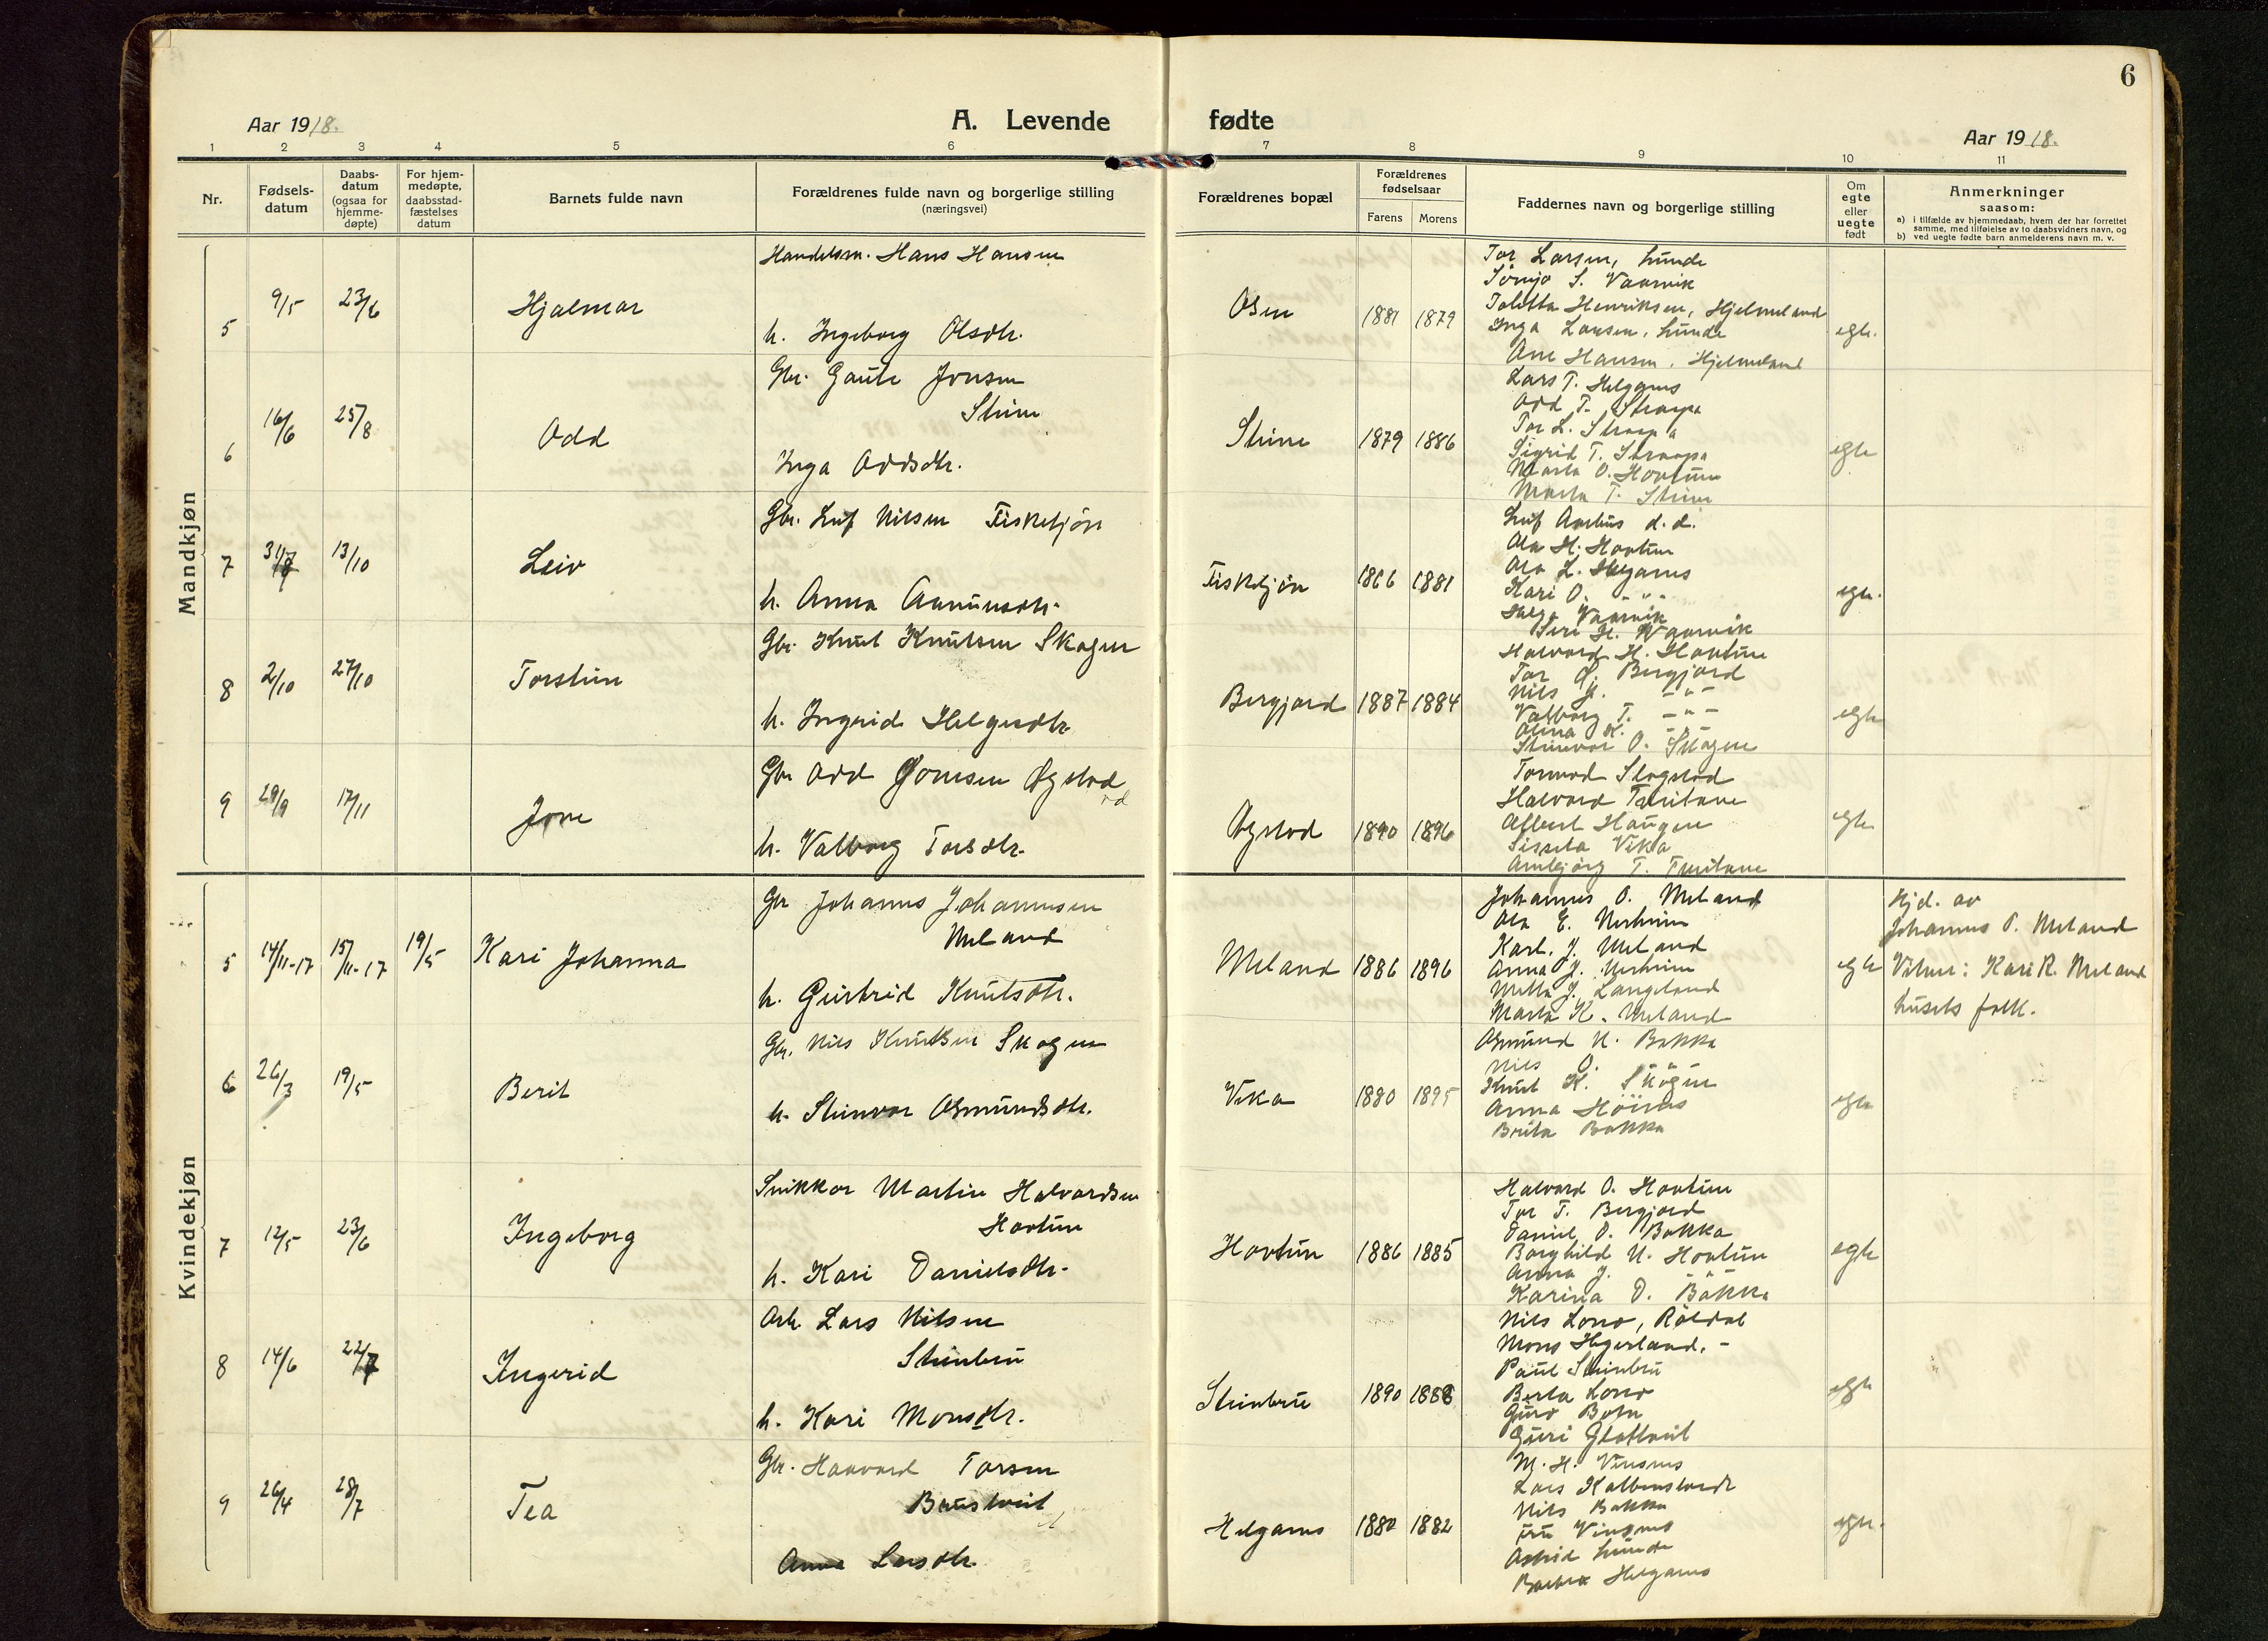 6
Aar 1918.
A. Levende fødte
Aar 1918.
1 2 3 4 5 6 7 8 9 10 11
Nr.
Fødsels-
datum
Daabs-
datum
(ogsaa for
hjemme-
døpte)
For hjem-
medøpte,
daabsstad-
fæstelses
datum
Barnets fulde navn
Forældrenes fulde navn og borgerlige stilling
(næringsvei)
Forældrenes bopæl
Forældrenes
fødselsaar
Farens Morens
Faddernes navn og borgerlige stilling
Om
egte
eller
uegte
født
Anmerkninger
saasom:
a) i tilfælde av hjemmedaab, hvem der har forrettet
samme, med tilføielse av to daabsvidners navn, og
b) ved uegte fødte barn anmelderens navn m. v.
Mandkjøn
5 9/5 23/6 Hjalmar
Handelsm. Hans Hansen
h. Ingeborg Olsdtr.
Osen 1881 1879
Tor Larsen, Lunde
S. Vaarvik
Henriksen, Hjelmeland
Inga Larsen, Lunde
Ane Hansen, Hjelmeland
egte.
6 16/6 25/8 Odd
Gbr. Gaute Jonsen
Steine
Inga Oddsdtr.
Steine 1879 1886
Lars T. Helganes
Odd T. Straapa
Tor L. Straapa
Sigrid T. Straapa
Marta O. Hovtun
Marta T. Steine
egte
7 31/7 13/10 Leiv
Gbr. Leif Nilsen Fisketjøn
h. Anna Aamundsdtr.
Fisketjøn 1866 1881
Leif Aarhus d. d.
Ola H. Hovtun
Ola L. Helganes
Kari O. - " -
Helga Vaarvik
Siri H. Vaarvik
egte.
8 2/10 27/10 Torstein
Gbr. Knut Knutsen Skogen
h. Ingerid Helgesdtr.
Bergjord 1887 1884
Halvard H. Hovtun
Tor Ø. Bergjord
Nils K. - " -
Valborg T. - " -
Olina K. - " -
Steinvor O. Skogen
egte
9 29/9 17/11 Jone
Gbr Odd Jonsen Øgstad
h. Valborg Torsdtr.
Øgstad 1890 1896
Tormod Slogstad
Halvard Tveitane
Albert Haugen
Vika
Annbjørg T. Tveitane
egte
Kvindekjøn
5 14/11-17 15/11-17 19/5 Kari Johanna
Gbr Johannes Johannesen
Meland
h. Geirtrid Knutsdtr.
Meland 1886 1896
Johannes O. Meland
Ola E. Nerheim
Karl. J. Meland
Anna J. Nerheim
Metta J. Langeland
Marta K. Meland
egte
Hjd. av
Johannes O. Meland
Vitner: Kari R. Meland
husets folk.
6 26/3 19/5 Berit
Gbr. Nils Knutsen Skogen
h. Steinvor Osmundsdtr.
Vika 1880 1895
Osmund N. Bakka
Nils O. - " -
Knut K. Skogen
Anna
Brita Bakka
egte
7 12/5 23/6 Ingeborg
Snikkar Martin Halvardsen
Hovtun
h. Kari Danielsdtr.
Hovtun 1886 1885
Halvard O. Hovtun
Tor T. Bergjord
Daniel O. Bakka
Borghild N. Hovtun
Anna J. - " -
Karina D. Bakka
egte
8 14/6 22/7 Ingerid
Arb Lars Nilsen
Steinbru
h. Kari Monsdtr.
Steinbru 1890 1888
Nils Lono, Röldal
Mons Hegerland. -
Paul Steinbru
Berta Lono
Guro Botn
Guri Glattveit
egte
9 26/4 28/7 Tea
Gbr. Haavard Torsen
Braustveit
Anna Larsdtr.
Helganes 1880 1882
M. H. Vinsnes
Lars
Nils Bakka
fru Vinsnes
Astrid Lunde
Helganes
egte.